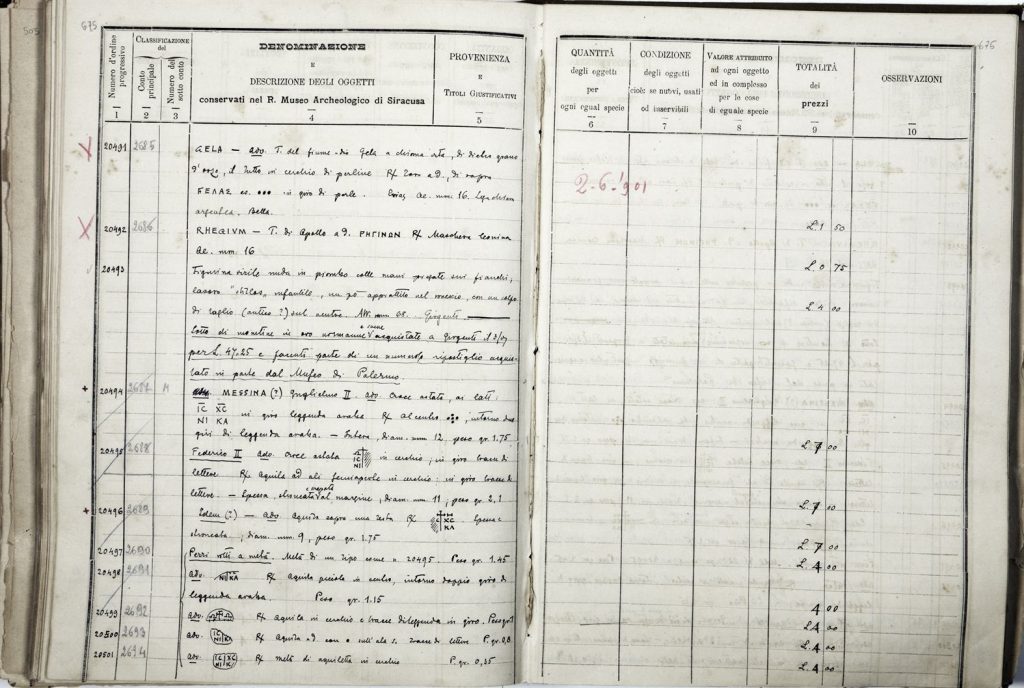 505
675
Numero d'ordine progressivo
CLASSIFICAZIONE del
Conto principale
Numero del sotto conto
DENOMINAZIONE
E
DESCRIZIONE DEGLI OGGETTI
conservati nel R. Museo Archeologico di Siracusa
PROVENIENZA
E
TITOLI GIUSTIFICATIVI
1 2 3 4 5
675
QUANTITÀ
degli oggetti
per
ogni egual specie
6
CONDIZIONE
degli oggetti
cioè: se nuovi, usati
od inservibili
7
VALORE ATTRIBUITO
ad ogni oggetto
ed in complesso
per le cose
di eguale specie
8
TOTALITÀ
dei
prezzi
9
OSSERVAZIONI
10
X 20491 2685 GELA — adv. T. del fiume dio Gela a chioma irta, di dietro grano
d'orzo, il tutto in cerchio di perline R/ Toro a D. di sopra
ΓΕΛΑΣ es. ••• in giro di perle. Ae. mm. 16.
Bella.
X 20492 2686 RHEGIVM — T. di Apollo a D. ΡΗΓΙΝΩΝ R/ Maschera leonina
Ae. mm. 16
20493 Figurina virile nuda in piombo colle mani piegate sui fianchi,
lavoro infantile, un pò appiattito nel mezzo, con un colpo
di taglio (antico?) sul ventre. Girgenti
Lotto di monetine in oro normanne e sveve acquistate a Girgenti
per L. 47.25 e facenti parte di un numeroso ripostiglio acquis-
tato in parte dal Museo di Palermo.
+ 20494 2687 MESSINA (?) Guglielmo II adv. Croce astata, ai lati:
IC XC
NI KA
in giro leggenda araba R/ al centro intorno due
giri di leggenda araba. — Intera, diam. mm 12, peso gr. 1.75
20495 2688 Federico II adv. croce astata IC NI in cerchio; in giro tracce di
lettere R/ Aquila ad ali in cerchio: in giro tracce di
lettere. — Spessa, al margine; diam. mm 11; peso gr. 2,1
+ 20496 2689 Idem (?) — adv. Aquila sopra una R/ C XC KA Spessa e
diam. mm. 9, peso gr. 1.75
20497 2690 Pezzi rotti a metà. Metà di un tipo come n. 20495. Peso gr. 1.45
20498 2691 adv. NI KA R/ aquila piccola in centro, intorno doppio giro di
leggenda araba. Peso gr. 1.15
20499 2692 adv. R/ aquila in cerchio e tracce di leggenda in giro.
20500 2693 adv. IC NI K R/ Aquila a D. tracce di lettere P. gr. 0,8
20501 2694 adv. IC XC NI K R/ metà di aquiletta in cerchio P. gr. 0,35
2.6.'901
L. 1 50
L. 0 75
L. 4 00
L. 7 00
L. 7 00
L. 7 00
L. 4 00
4 00
L. 4 00
L. 4 00
L. 4 00